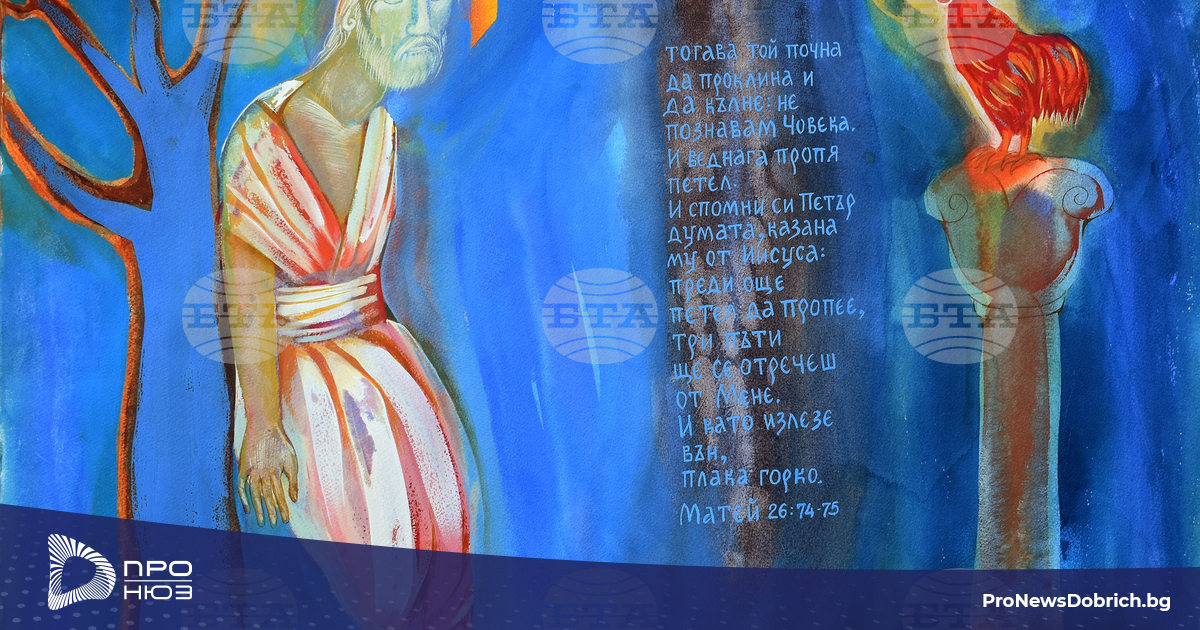 тогава той почна
да проклина и
да кълне: не
познавам Човека.
И веднага пропя
петел.
И спомни си Петър
думата, казана
му от Иисуса:
преди още
петел да пропее,
три пъти
ще се отречеш
от Мене.
И като излезе
вън,
плака горко.
Матей 26:74-75
БТА БТА БТА
БТА БТА БТА
ПРО
НЮЗ
ProNewsDobrich.bg